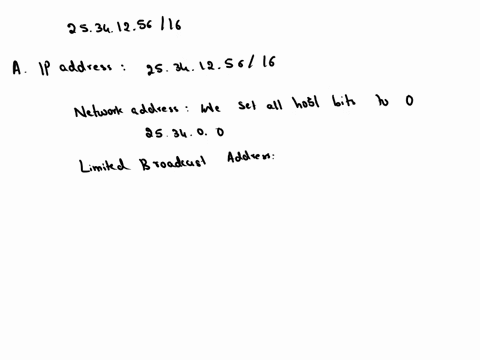 25.34.12.56/16
A. IP address: 25.34.12.56/16
Network address: We set all host bits to 0
25.34.0.0
Limited Broadcast Address: